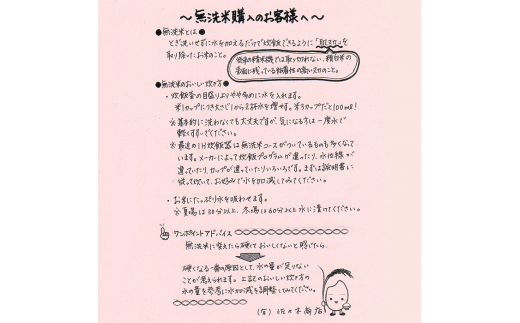 〜無洗米購入のお客様へ〜
●無洗米とは●
とぎ洗いせずに水を加えるだけで炊飯できるように「肌ヌカ」を
取り除いたお米のこと。
従来の精米機では取り切れない、精白米の
表面に残っている粘着性の高いヌカのこと。
●無洗米のおいしい炊き方●
・炊飯釜の目盛りよりやや多めに水を入れます。
米1カップにつき大さじ1から2杯水を増やす。米5カップだと100ml!
※基本的に洗わなくても大丈夫ですが、気になる方は一度水で
軽くすすいでください。
※最近のIH炊飯器は無洗米コースがついているものも多くなって
います。メーカーによって炊飯プログラムが違ったり、水位線が
違ったり、カップが違ったりいろいろです。まずは説明書に
従って炊いて、お好みで水を加減してみてください。
・お米にたっぷり水を吸わせます。
※夏場は30分以上、冬場は60分以上水に漬けてください。
ワンポイントアドバイス
無洗米に替えたら硬くておいしくないと感じたら、
硬くなる一番の原因として、水の量が足りない
ことが考えられます。上記のおいしい炊き方の
水の量を参考に水加減を調整してみてください。
(有)佐々木商店